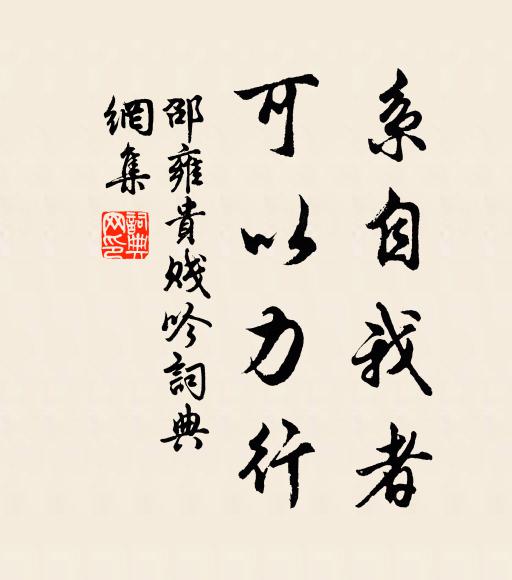 系自我者
可以力行
邵雍貴賤吟詞典
網集
詞典
网印